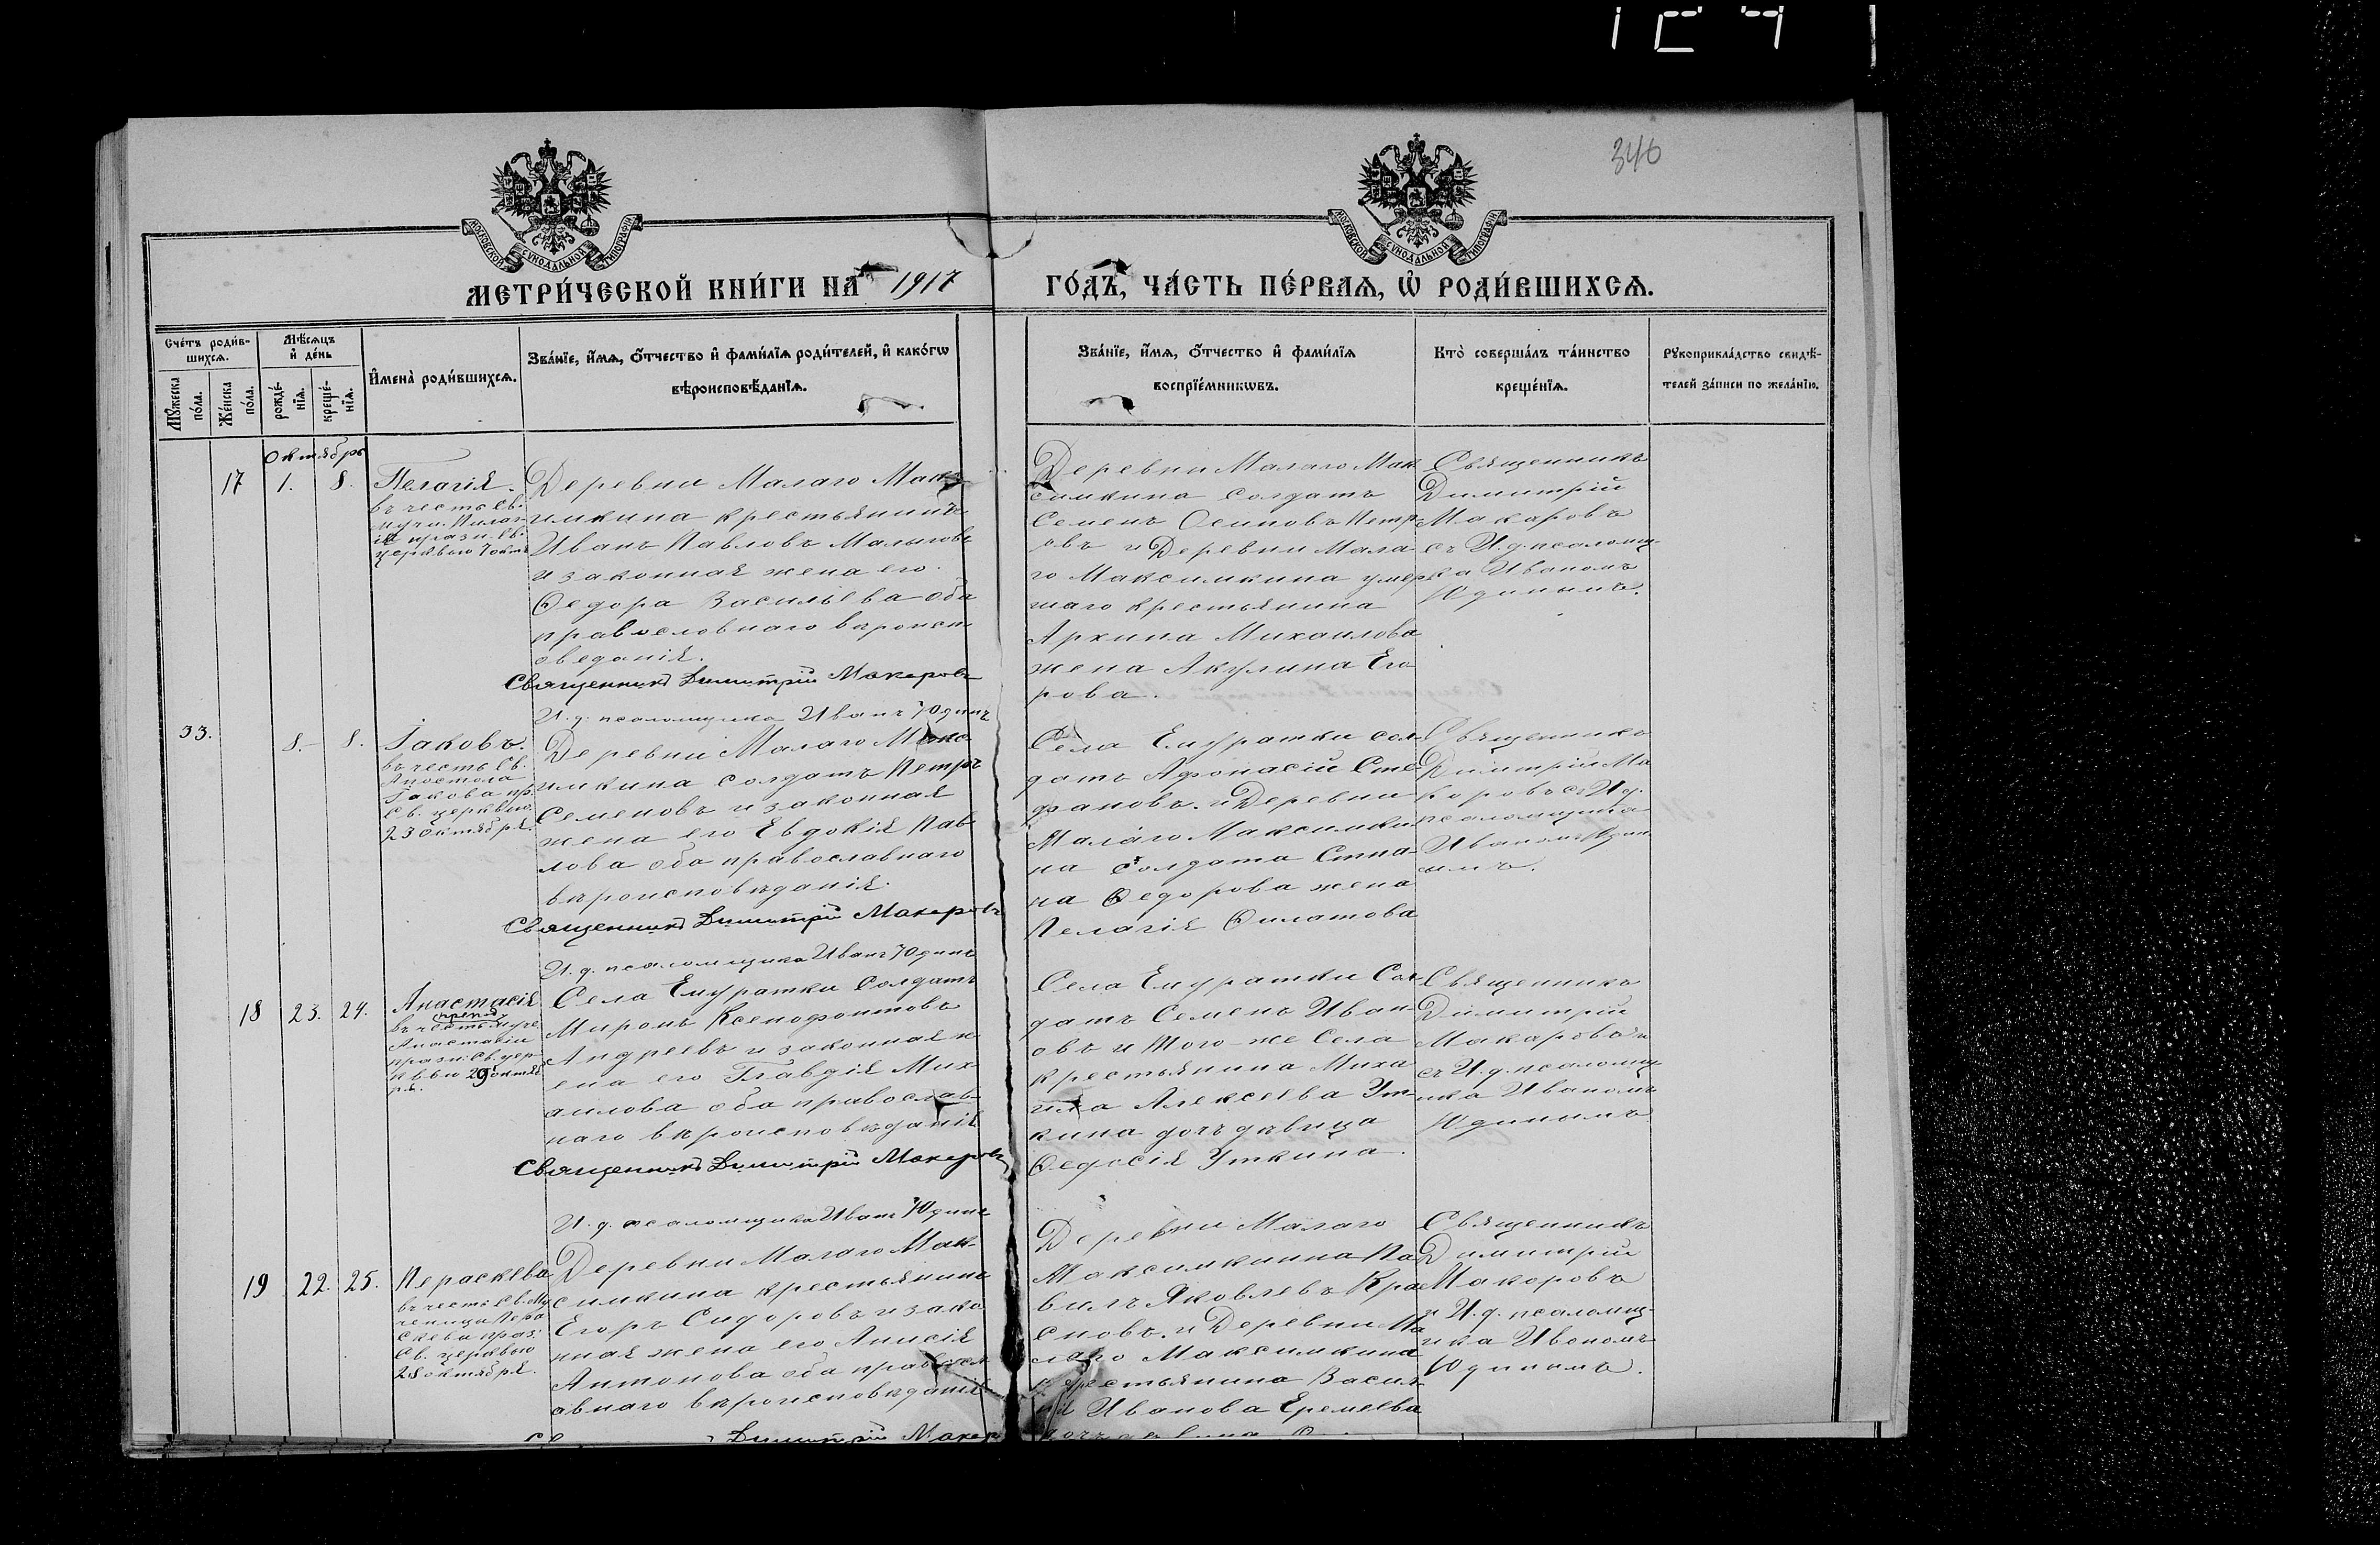 346
МОСКОВСКОЙ СУНОДАЛЬНОЙ ТИПОГРАФІИ
МОСКОВСКОЙ СУНОДАЛЬНОЙ ТИПОГРАФІИ
МЕТРИ́ЧЕСКОЙ КНИ́ГИ НА 1917 ГО́ДЪ, ЧА́СТЬ ПЕ́РВАЯ, Ѡ҆ РОДИ́ВШИХСЯ.
Сче́тъ роди́в-
шихся.
Мꙋ́жеска
по́ла.
Же́нска
по́ла.
Мѣ́сяцъ
и҆ де́нь
рожде́-
нїя.
креще́-
нїя.
И҆мена̀ роди́вшихся.
Зва́нїе, и҆́мя, ѻ҆́тчество и҆ фами́лїя роди́телей, и҆ како́гѡ
вѣроисповѣ́данїя.
Зва́нїе, и҆́мя, ѻ҆́тчество и҆ фами́лїя
воспрїе́мникѡвъ.
Кто̀ соверша́лъ та́инство
креще́нїя.
Рꙋкоприкла́дство свидѣ́-
телей за́писи по жела́нїю.
Октябрь
17
1.
8.
Пелагія.
въ честь Св.
муч. Пелаг-
іи празн. Св.
церквью 7 окт.
Деревни Малаго Макс
имкина крестьянинъ
Иванъ Павловъ Малыговъ
и законная жена его
Ѳедора Васильева оба
православнаго вѣроисп
оведанія.
Священникъ Димитрій Макаровъ
И. д. псаломщика Иванъ Юдинъ
Деревни Малаго Мак
симкина солдатъ
Семенъ Осиповъ Петр
овъ и Деревни Мала
го Максимкина умер
шаго крестьянина
Архипа Михаилова
жена Акулина Его
рова.
Священникъ
Димитрій
Макаровъ
съ И. д. псаломщ-
ка Иваномъ
Юдинымъ.
33.
8.
8.
Іаковъ.
въ честь Св.
Апостола
Іакова пр.
Св. церквью
23 октября.
Деревни Малаго Макс
имкина солдатъ Петръ
Семеновъ и законная
жена его Евдокія Пав
лова оба православнаго
вѣроисповѣданія.
Священникъ Димитрій Макаровъ
И. д. псаломщика Иванъ Юдинъ
Села Емуратки сол
датъ Афонасій Сте-
фановъ. и Деревни
Малаго Максимки
на солдата Степа-
на Ѳедорова жена
Пелагія Филатова
Священникъ
Димитрій Ма
каровъ съ И. д.
псаломщика
Иваномъ Юдин
ымъ.
18
23.
24.
Анастасія
препод.
въ честь муче.
Анастасіи
празн. Св. цер-
квью 29 октяб
ря.
Села Емуратки Солдатъ
Миронъ Ксенофонтовъ
Андреевъ и законная ж
ена его Главдія Мих
аилова оба православ-
наго вѣроисповѣданія
Священникъ Димитрій Макаровъ
И. д. псаломщика Иванъ Юдинъ
Села Емуратки Сол
датъ Семенъ Иван
овъ и того-же Села
крестьянина Миха
ила Алексеева Ут
кина дочь дѣвица
Ѳедосія Уткина.
Священникъ
Димитрій
Макаровъ
съ И. д. псаломщ-
ика Иваномъ
Юдинымъ
19
22.
25.
Пераскева
въ честь Св. Му
ченицы Пера
скевы праз.
Св. церквью
28 октября.
Деревни Малаго Мак-
симкина крестьянинъ
Егоръ Сидоровъ и зако
нная жена его Анисія
Антонова оба правосл
авнаго вѣроисповѣданія
Димитрій Макар
Деревни Малаго
Максимкина Па
вилъ Яковлевъ Кра
сновъ. и Деревни Ма
лаго Максимкина
крестьянина Васил
ія Иванова Еремеева
Священникъ
Димитрій
Макаровъ
и И. д. псаломщ-
ика Иваномъ
Юдинымъ.